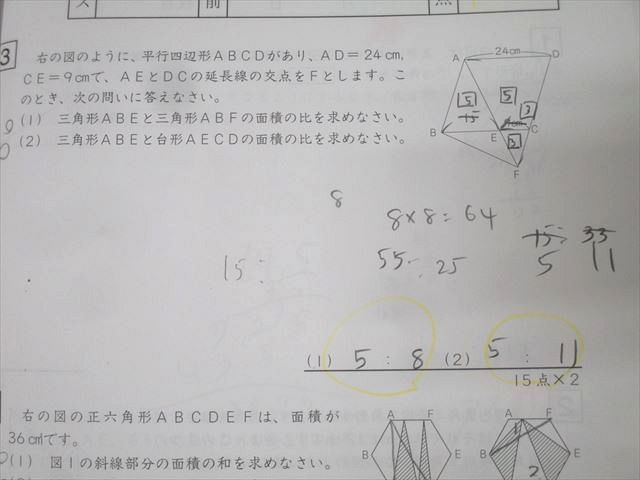 ス 前 点
3 右の図のように、平行四辺形ABCDがあり、AD=24cm,
CE=9cmで、AEとDCの延長線の交点をFとします。こ
のとき、次の問いに答えなさい。
(1) 三角形ABEと三角形ABFの面積の比を求めなさい。
(2) 三角形ABEと台形AECDの面積の比を求めなさい。
A 24cm D
5 5
15 3
B E C
3
F
8
8×8=64
15: 33
15: 55: 25 5 11
(1) 5 : 8 (2) 5 : 11
15点×2
右の図の正六角形ABCDEFは、面積が
36cm²です。
(1) 図1の斜線部分の面積の和を求めなさい。
A F A F
1
B E B E
2